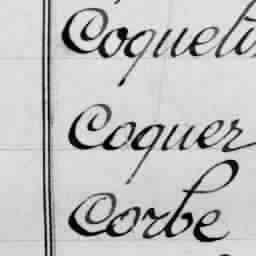 Coqueli
Coquer
Corbe